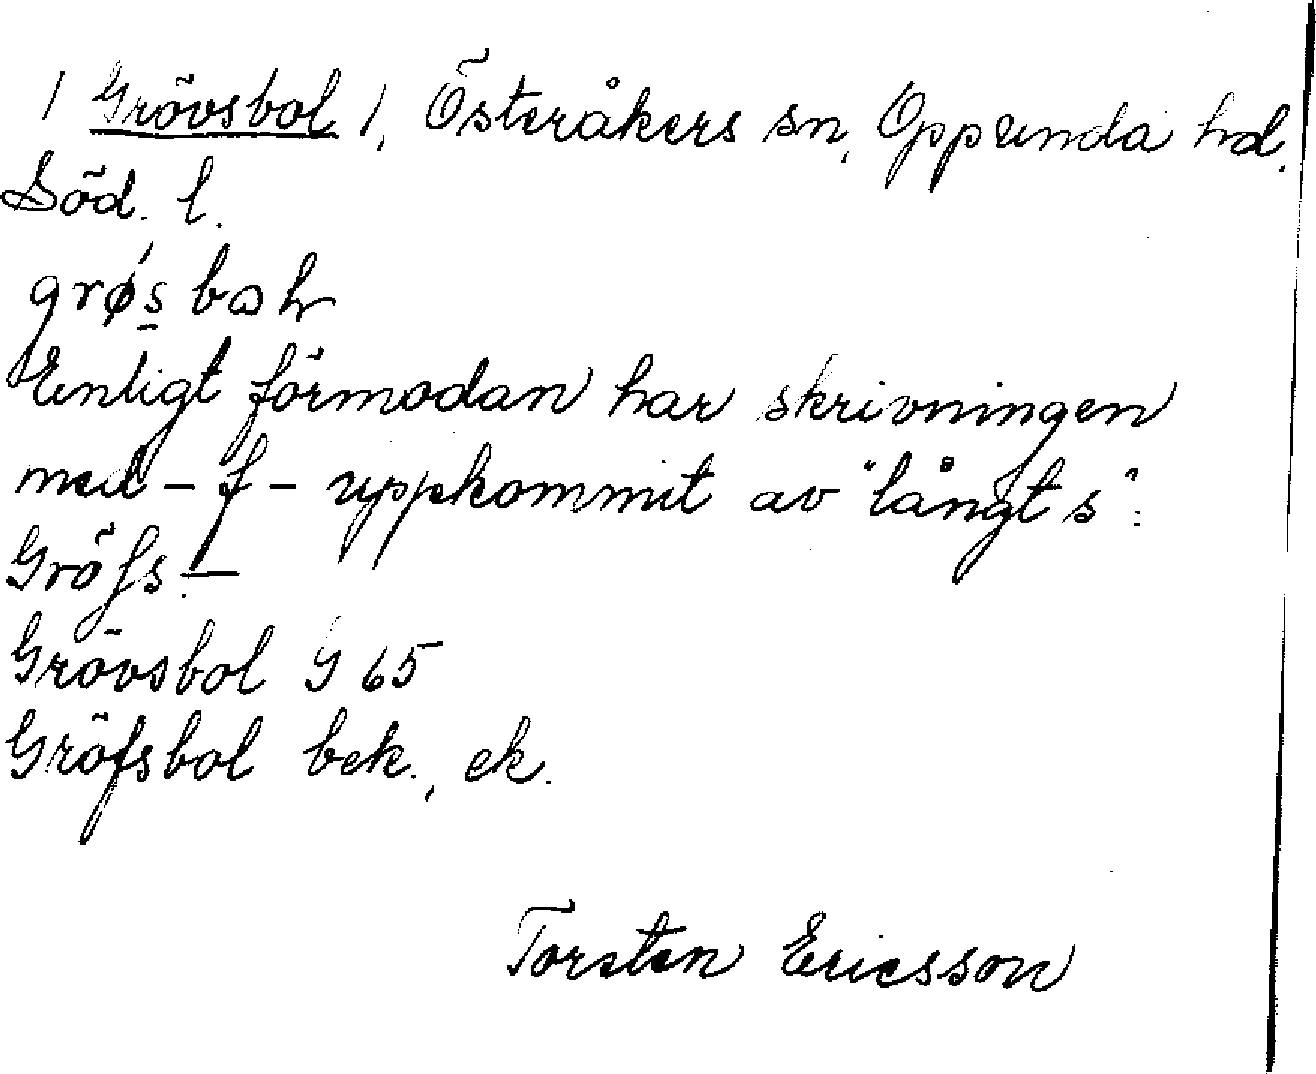 / Grövsbol /, Österåkers sn, Oppunda hd.
Söd. l.
Enligt förmodan har skrivningen
med – f – uppkommit av "långt s":
Gröfs.—
Grövsbol G 65
Gröfsbol bek., ek.
Torsten Ericsson